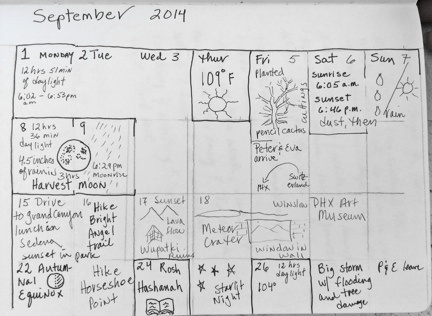 September 2014
1 MONDAY
12hrs 51min
of daylight
6:02 - 6:53pm
am
2 Tue
Wed 3
Thur
109°F
Fri 5
Planted
cuttings
pencil cactus
Peter & Eva
arrive
PHX
Switzerland
Sat 6
Sunrise
6:05 a.m.
Sunset
6:46 p.m.
dust, then
Sun 7
rain
8 12hrs
36 min
daylight
4.5 inches
of rain in
3hrs
9
6:29pm
moonrise
Harvest moon
15 Drive
to grand Canyon
lunch in
Sedona
sunset in park
16 Hike
Bright
Angel
trail
17 Sunset
Lava
Flow
Wupatki
Ruins
18
Meteor
Crater
Winslow
Window in
Wall
PHX Art
Museum
22 Autum-
nal
Equinox
Hike
Horseshoe
Point
24 Rosh
Hashanah
Starlit
Night
26 12 hrs
daylight
104°
Big storm
w/ flooding
and tree
damage
P & E leave